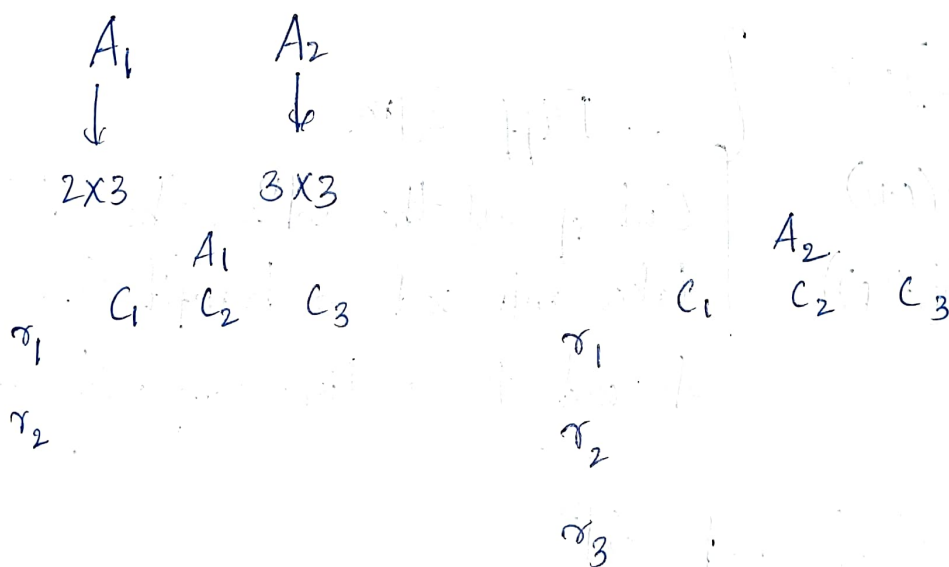 A₁ A₂
↓ ↓
2×3 3×3
A₁
C₁ C₂ C₃
r₁
r₂
A₂
C₁ C₂ C₃
r₁
r₂
r₃